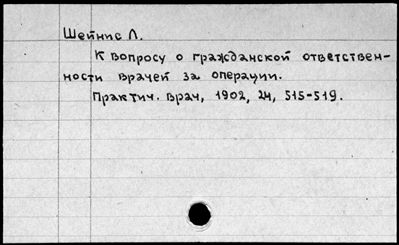 Шейнис Л.
К вопросу о гражданской ответствен-
ности врачей за операции.
Практич. врач, 1902, 24, 515-519.